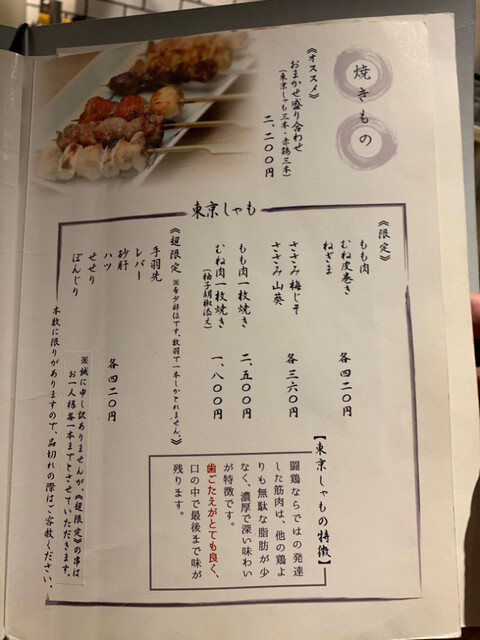 焼きもの
《オススメ》
おまかせ盛り合わせ
(東京しゃも三本・赤鶏三本)
二、二〇〇円
東京しゃも
《限定》
もも肉
むね皮巻き
ねぎま
各四二〇円
ささみ梅じそ
ささみ山葵
各三六〇円
もも肉一枚焼き
二、五〇〇円
むね肉一枚焼き
(柚子胡椒添え)
一、八〇〇円
《超限定》
※希少部位です。数羽で一本しかとれません。
手羽先
レバー
砂肝
ハツ
せせり
ぼんじり
各四二〇円
※誠に申し訳ありませんが、《超限定》の串は
お一人様各一本までとさせていただきます。
本数に限りがありますので、品切れの際はご容赦ください。
【東京しゃもの特徴】
闘鶏ならではの発達
した筋肉は、他の鶏よ
りも無駄な脂肪が少
なく、濃厚で深い味わい
が特徴です。
歯ごたえがとても良く、
口の中で最後まで味が
残ります。